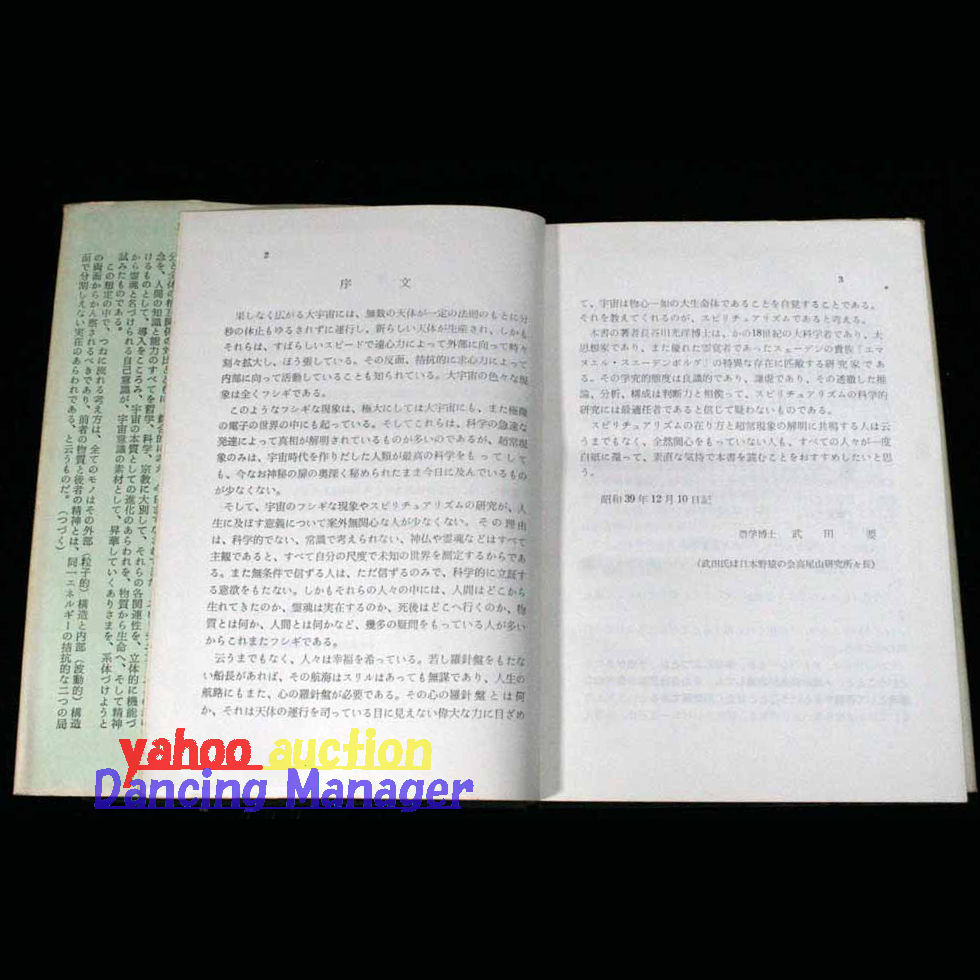 2
序　文
果しなく広がる大宇宙には、無数の天体が一定の法則のもとに分
秒の休止もゆるされずに運行し、新らしい天体が生産され、しかも
それらは、すばらしいスピードで遠心力によって外部に向って時々
刻々拡大し、ぼう張している。その反面、拮抗的に求心力によって
内部に向って活動していることも知られている。大宇宙の色々な現
象は全くフシギである。
このようなフシギな現象は、極大にしては大宇宙にも、また極微
の電子の世界の中にも起っている。そしてこれらは、科学の急速な
発達によって真相が解明されているものが多いのであるが、超常現
象のみは、宇宙時代を作りだした人類が最高の科学をもってして
も、今なお神秘の扉の奥深く秘められたまま今日に及んでいるもの
が少なくない。
そして、宇宙のフシギな現象やスピリチュアリズムの研究が、人
生に及ぼす意義について案外無関心な人が少なくない。その理由
は、科学的でない、常識で考えられない、神仏や霊魂などはすべて
主観であると、すべて自分の尺度で未知の世界を測定するからであ
る。また無条件で信ずる人は、ただ信ずるのみで、科学的に立証す
る意欲をもたない。しかもそれらの人々の中には、人間はどこから
生れてきたのか、霊魂は実在するのか、死後はどこへ行くのか、物
質とは何か、人間とは何かなど、幾多の疑問をもっている人が多い
からこれまたフシギである。
云うまでもなく、人々は幸福を希っている。若し羅針盤をもたな
い船長があれば、その航海はスリルはあっても無謀であり、人生の
航路にもまた、心の羅針盤が必要である。その心の羅針盤とは何
か、それは天体の運行を司っている目に見えない偉大な力に目ざめ
3
て、宇宙は物心一如の大生命体であることを自覚することである。
それを教えてくれるのが、スピリチュアリズムであると考える。
本書の著者長谷川光洋博士は、かの18世紀の大科学者であり、大
思想家であり、また優れた霊覚者であったスェーデンの貴族「エマ
ヌエル・スエーデンボルグ」の特異な存在に匹敵する研究家であ
る。その学究的態度は良識的であり、謙虚であり、その透徹した推
論、分析、構成は判断力と相俟って、スピリチュアリズムの科学的
研究には最適任者であると信じて疑わないものである。
スピリチュアリズムの在り方と超常現象の解明に共鳴する人は云
うまでもなく、全然関心をもっていない人も、すべての人々が一度
白紙に還って、素直な気持で本書を読むことをおすすめしたいと思
う。
昭和39年12月10日記
農学博士　武　田　要
（武田氏は日本野猿の会高尾山研究所々長）
念を、人間の知識と能力のすべてを哲学、科学、宗教に大別して、それらの各関連性を、立体的に機能づ
けるものとして、導入をこころみ、宇宙の本質としての進化のあらわれを、物質から生命へ、そして精神
から霊魂と名づけられる自己意識が、宇宙意識の素材として、昇華していくありさまを、系体づけようと
試みたものである。
この想定の中で、つねに流れる考え方は、全てのモノはその外部（粒子的）構造と内部（波動的）構造
の両面から为察されるべきであり、前者の物質と後者の精神とは、同一エネルギーの拮抗的な二つの局
面で分割しえない実在のあらわれである、と云うものだ。（つづく）
yahoo auction
Dancing Manager